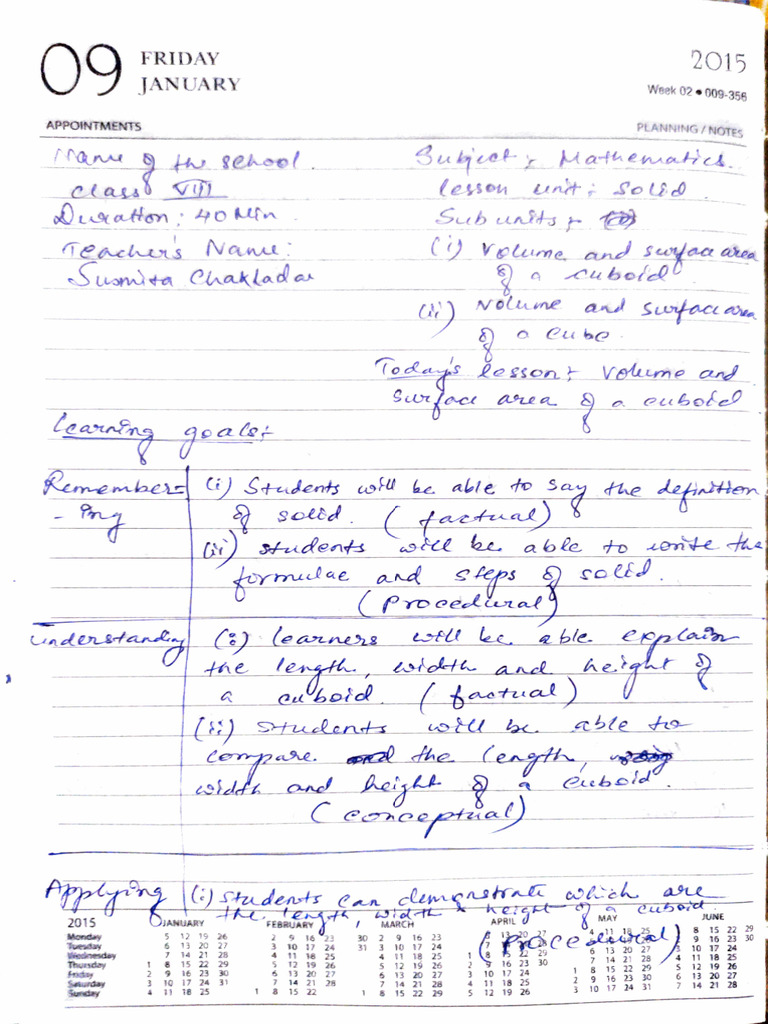 09 FRIDAY JANUARY
2015
Week 02 • 009-356
APPOINTMENTS
PLANNING / NOTES
Name of the school.
Class VIII
Duration: 40 Min
Teacher's Name:
Susmita Chakladar
Subject:- Mathematics.
Lesson unit:- Solid
Sub units:-
(i) Volume and surface area
of a cuboid
(ii) Volume and surface area
of a cube.
Today's lesson:- Volume and
surface area of a cuboid
Learning goals:-
Remember-
-ing
(i) Students will be able to say the definition
of solid. (factual)
(ii) students will be able to write the
formulae and steps of solid.
(Procedural)
Understanding
(i) learners will be able explain
the length, width and height of
a cuboid. (factual)
(ii) Students will be able to
compare the length,
width and height of a cuboid.
(conceptual)
Applying
(i) Students can demonstrate which are
the length, width & height of a cuboid.
(Procedural)
2015 JANUARY FEBRUARY MARCH APRIL MAY JUNE
Monday 5 12 19 26 2 9 16 23 30 2 9 16 23 6 13 20 27 4 11 18 25 8 15 22 29
Tuesday 6 13 20 27 3 10 17 24 31 3 10 17 24 7 9 16 23 30
Wednesday 7 14 21 28 4 11 18 25 4 11 18 25 1 8 6 13 20 27 3 10 17 24
Thursday 1 8 15 22 29 5 12 19 26 5 12 19 26 2 9 16 23 30 7 14 21 28 4 11 18 25
Friday 2 9 16 23 30 6 13 20 27 6 13 20 27 3 10 17 24 1 8 15 22 29 5 12 19 26
Saturday 3 10 17 24 31 7 14 21 28 7 14 21 28 4 11 18 25 2 9 16 23 30 6 13 20 27
Sunday 4 11 18 25 1 8 15 22 1 8 15 22 29 5 12 19 26 3 10 17 24 31 7 14 21 28